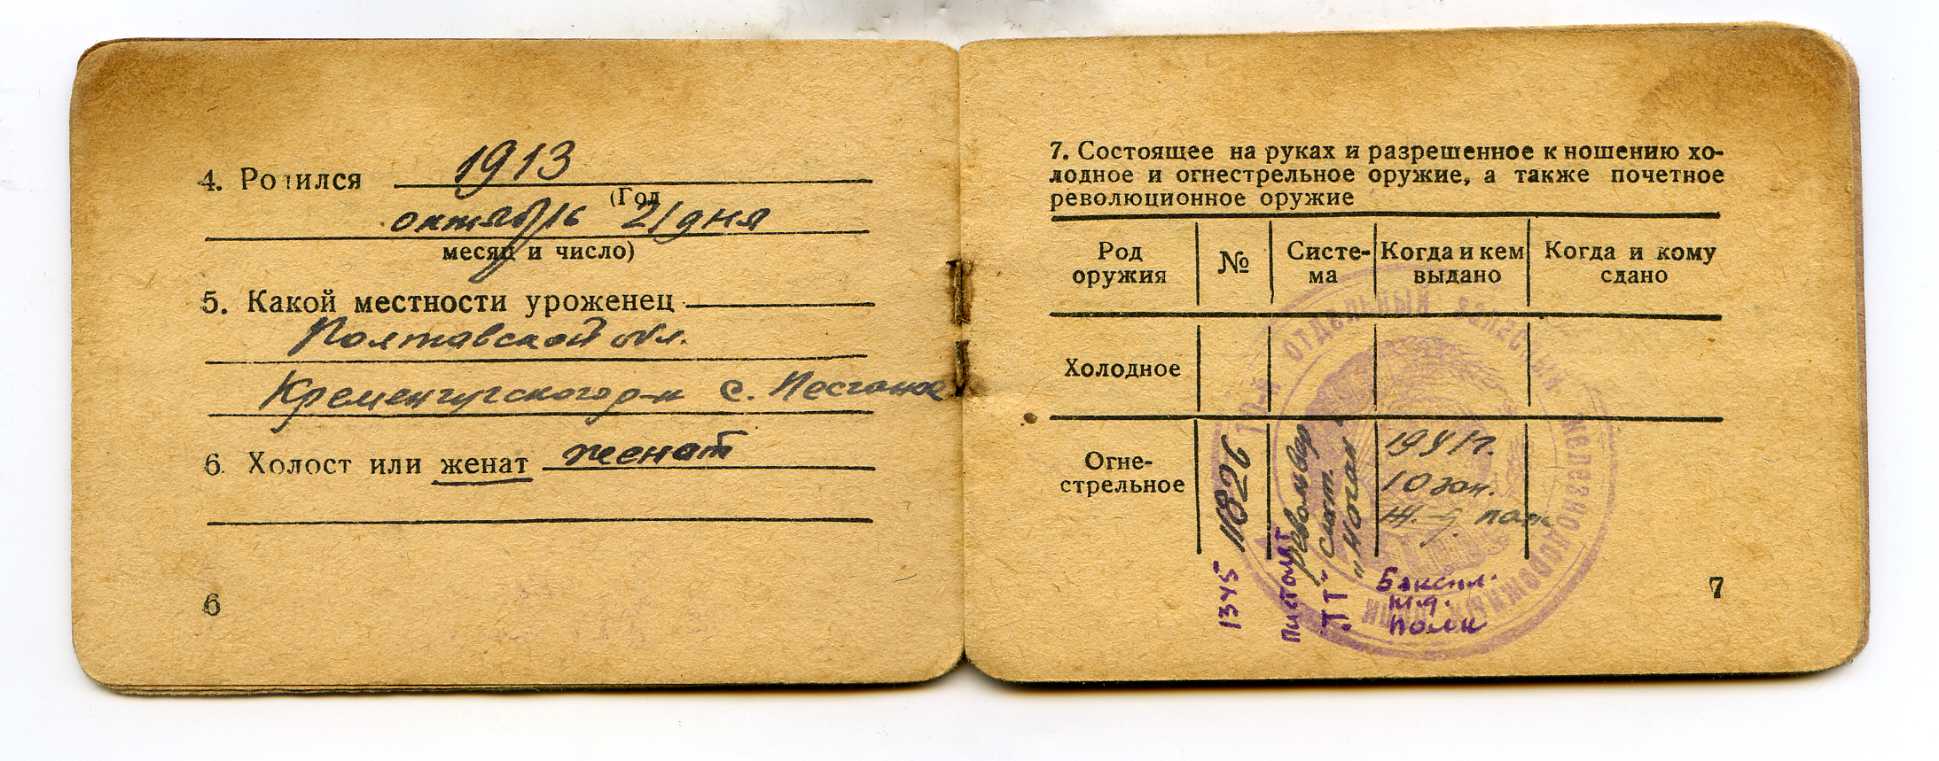 4. Родился 1913
(Год
октября 21 дня
месяц и число)
5. Какой местности уроженец
Полтавской обл.
Кременчугского р-н с. Песчаное
6 Холост или женат женат
6
7. Состоящее на руках и разрешенное к ношению хо-
лодное и огнестрельное оружие, а также почетное
революционное оружие
Род оружия № Систе-ма Когда и кем выдано Когда и кому сдано
Холодное
Огне-
стрельное
11826
револьвер
сист.
"Наган"
1941 г.
10
Ж.
1345
Пистолет
"ТТ"
полк
10-й ОТДЕЛЬНЫЙ ЗАПАСНЫЙ ЖЕЛЕЗНОДОРОЖНЫЙ ПОЛК
7